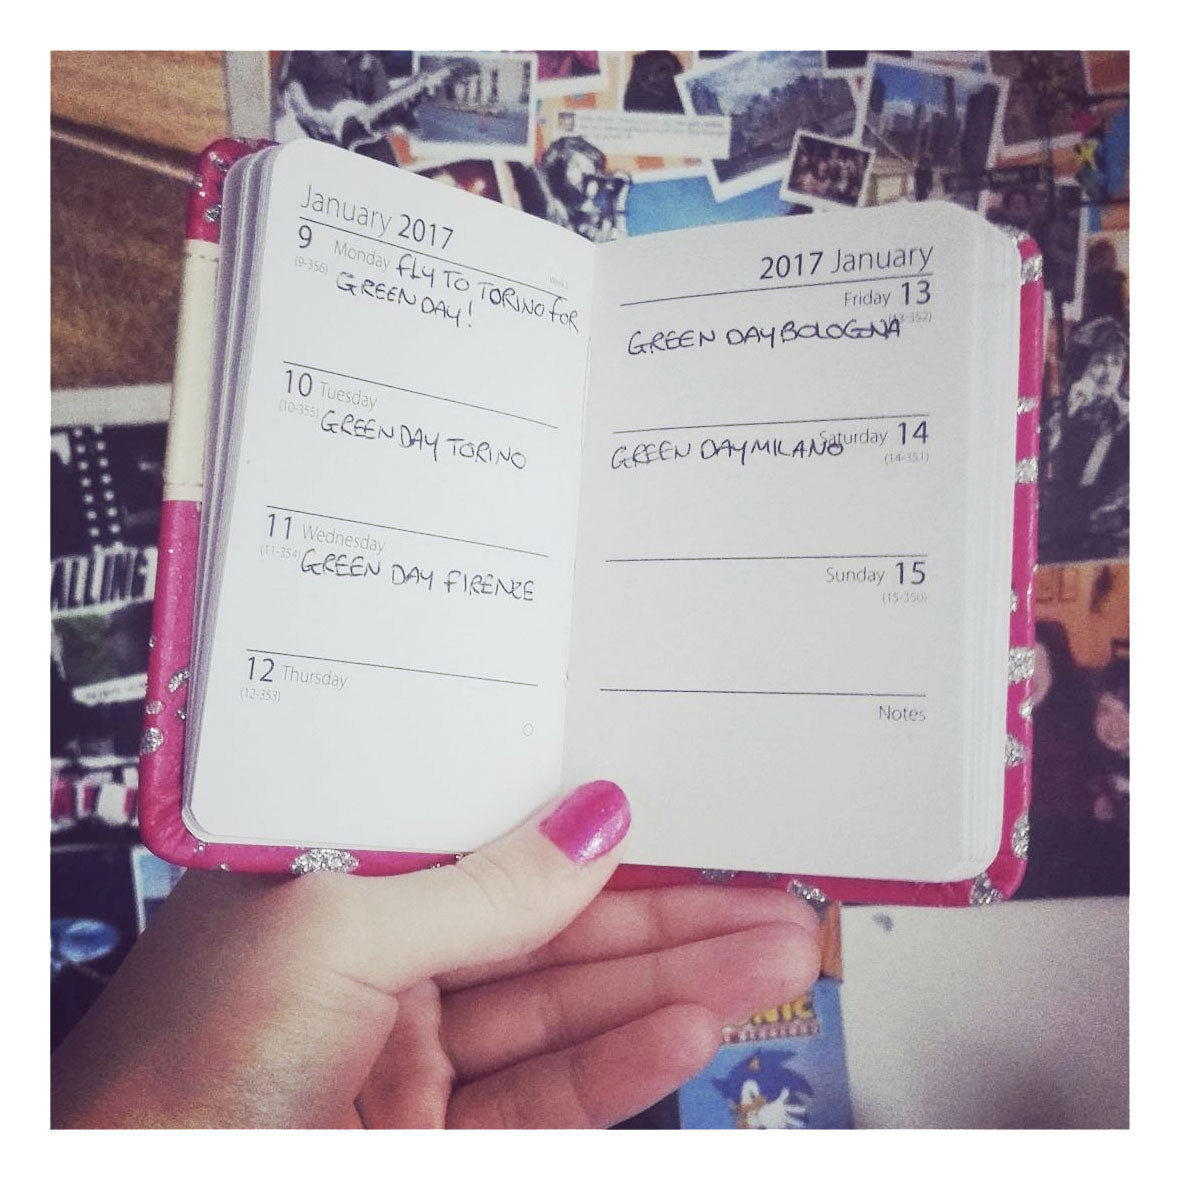 January 2017
9 Monday FLY TO TORINO FOR
(9-356)
GREEN DAY!
10 Tuesday
(10-355) GREEN DAY TORINO
11 Wednesday
(11-354) GREEN DAY FIRENZE
12 Thursday
(12-353)
2017 January
Friday 13
(13-352)
GREEN DAY BOLOGNA
Saturday 14
GREEN DAY MILANO
(14-351)
Sunday 15
(15-350)
Notes
ALLING